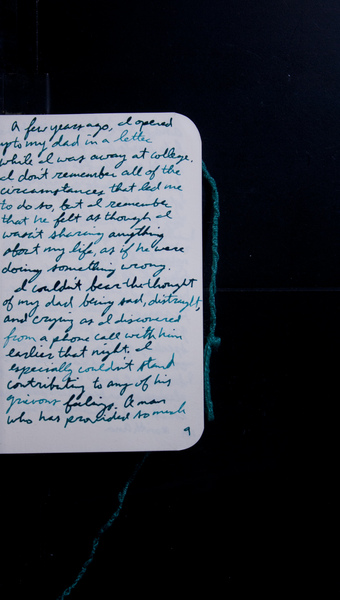 A few years ago, I opened
up to my dad in a letter
while I was away at college.
I don't remember all of the
circumstances that led me
to do so, but I remember
that he felt as though I
wasn't sharing anything
about my life, as if he were
doing something wrong.
I couldn't bear the thought
of my dad being sad, distraught,
and crying as I discovered
from a phone call with him
earlier that night. I
especially couldn't stand
contributing to any of his
grievous feelings. A man
who has provided so much
9